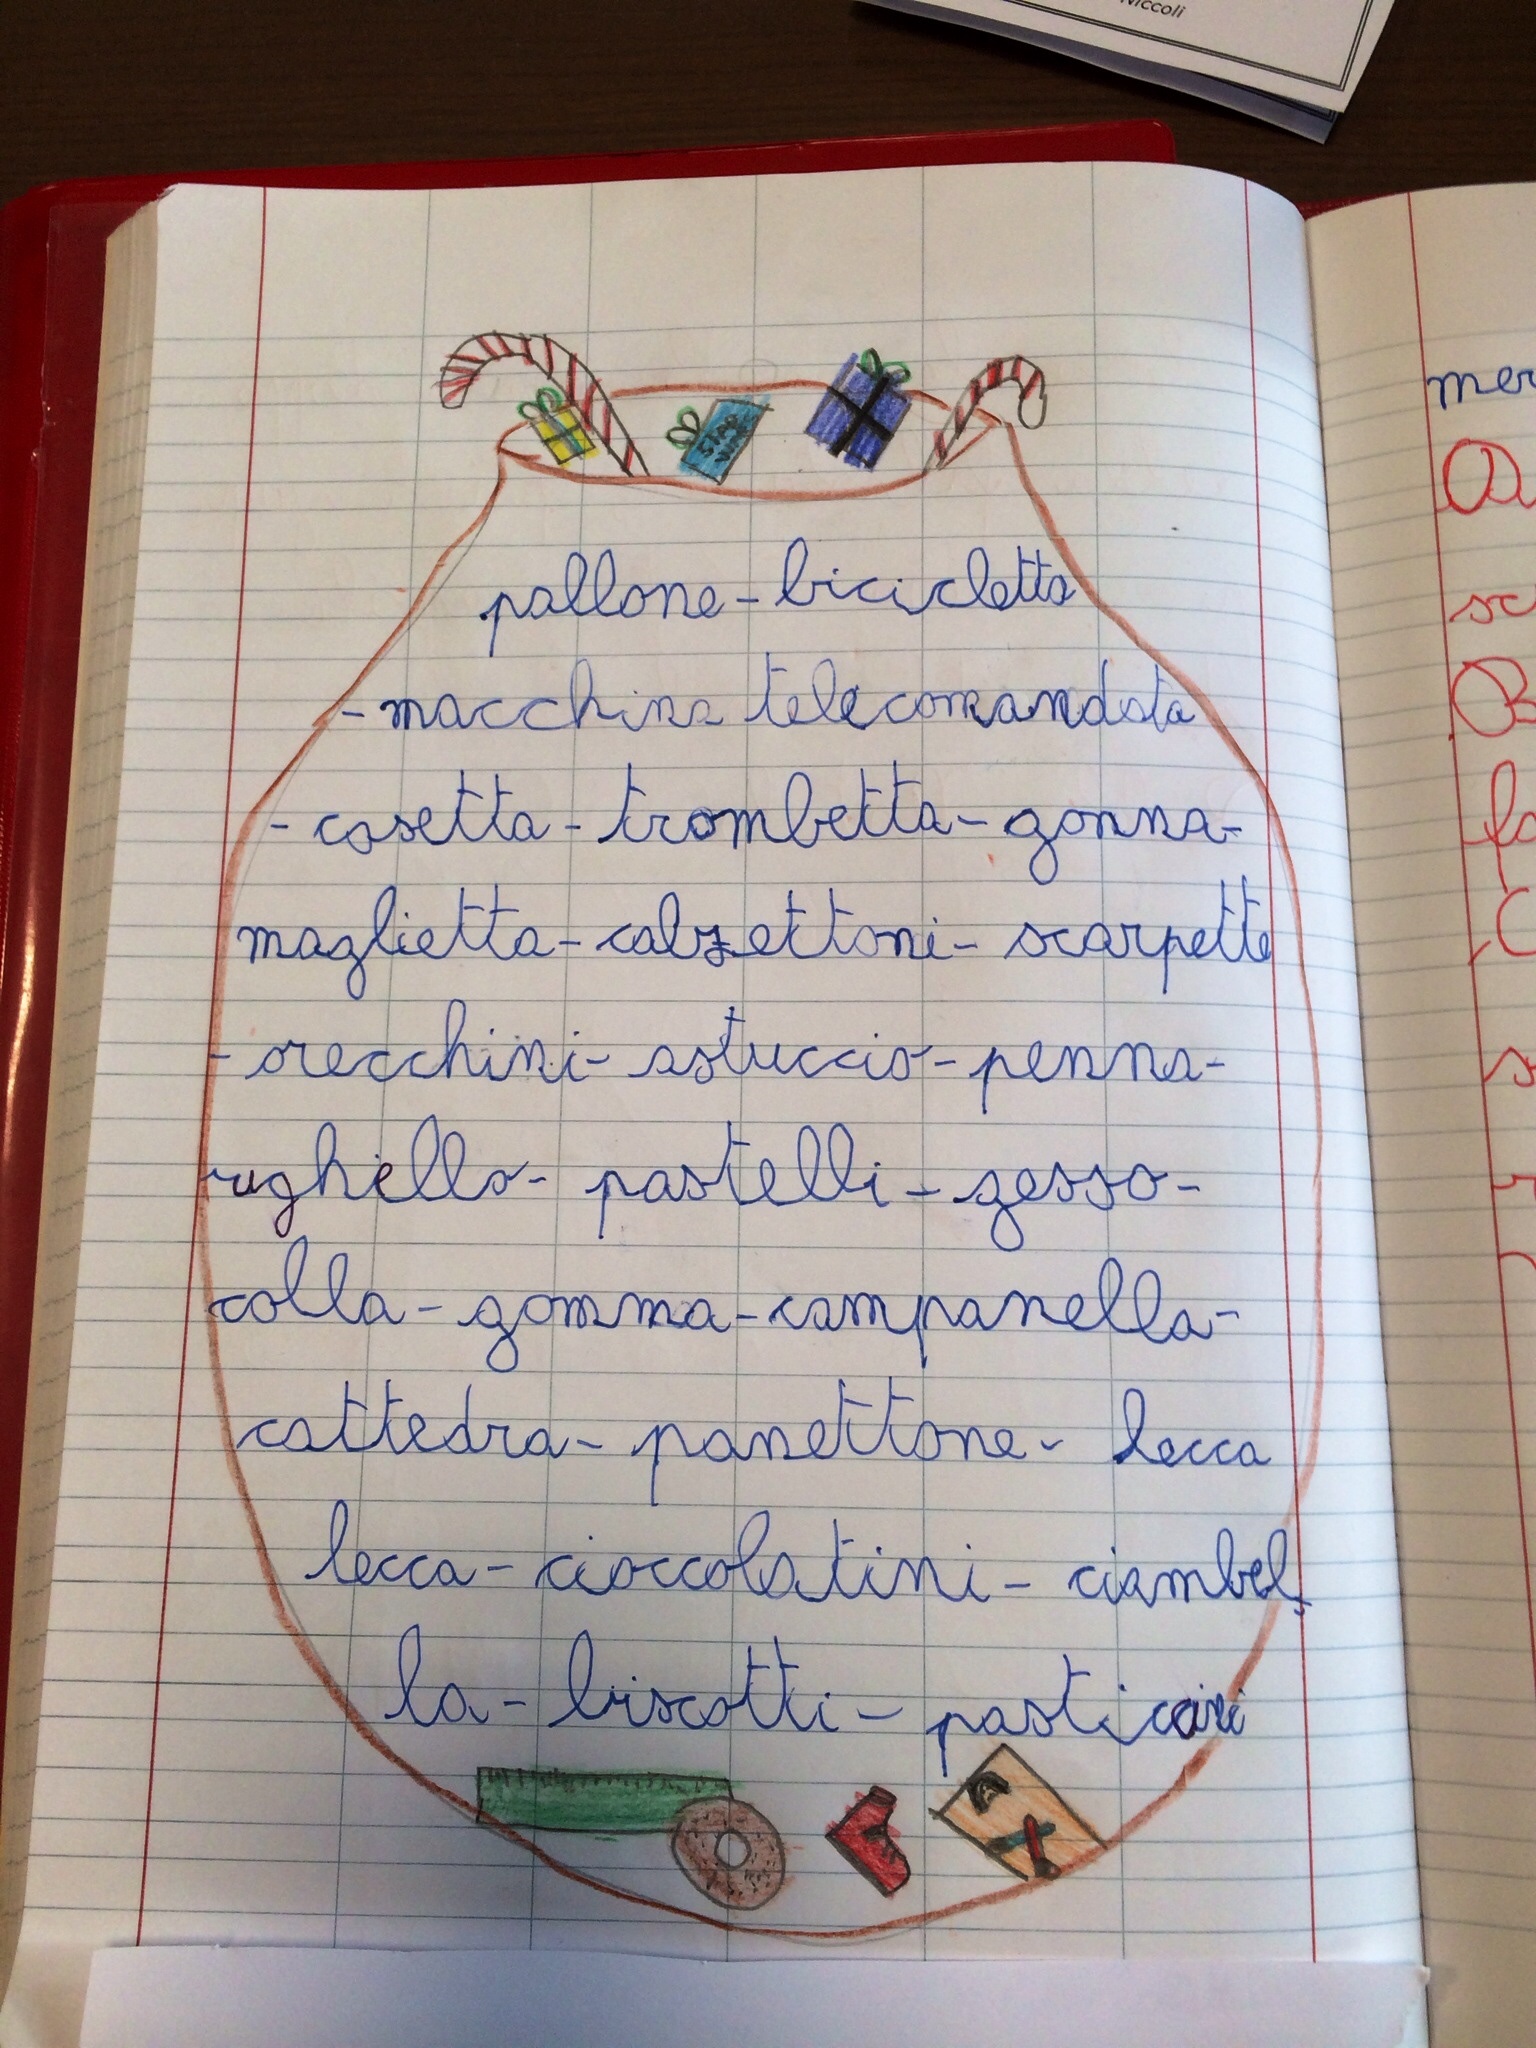 Niccoli
STAR
WARS
pallone - bicicletta
- macchina telecomandata
- casetta - trombetta - gonna -
maglietta - calzettoni - scarpette
- orecchini - astuccio - penna -
righello - pastelli - gesso -
colla - gomma - campanella -
cattedra - panettone - lecca
lecca - cioccolatini - ciambel
la - biscotti - pasticcini
mer
A
sc
B
fa
C
s